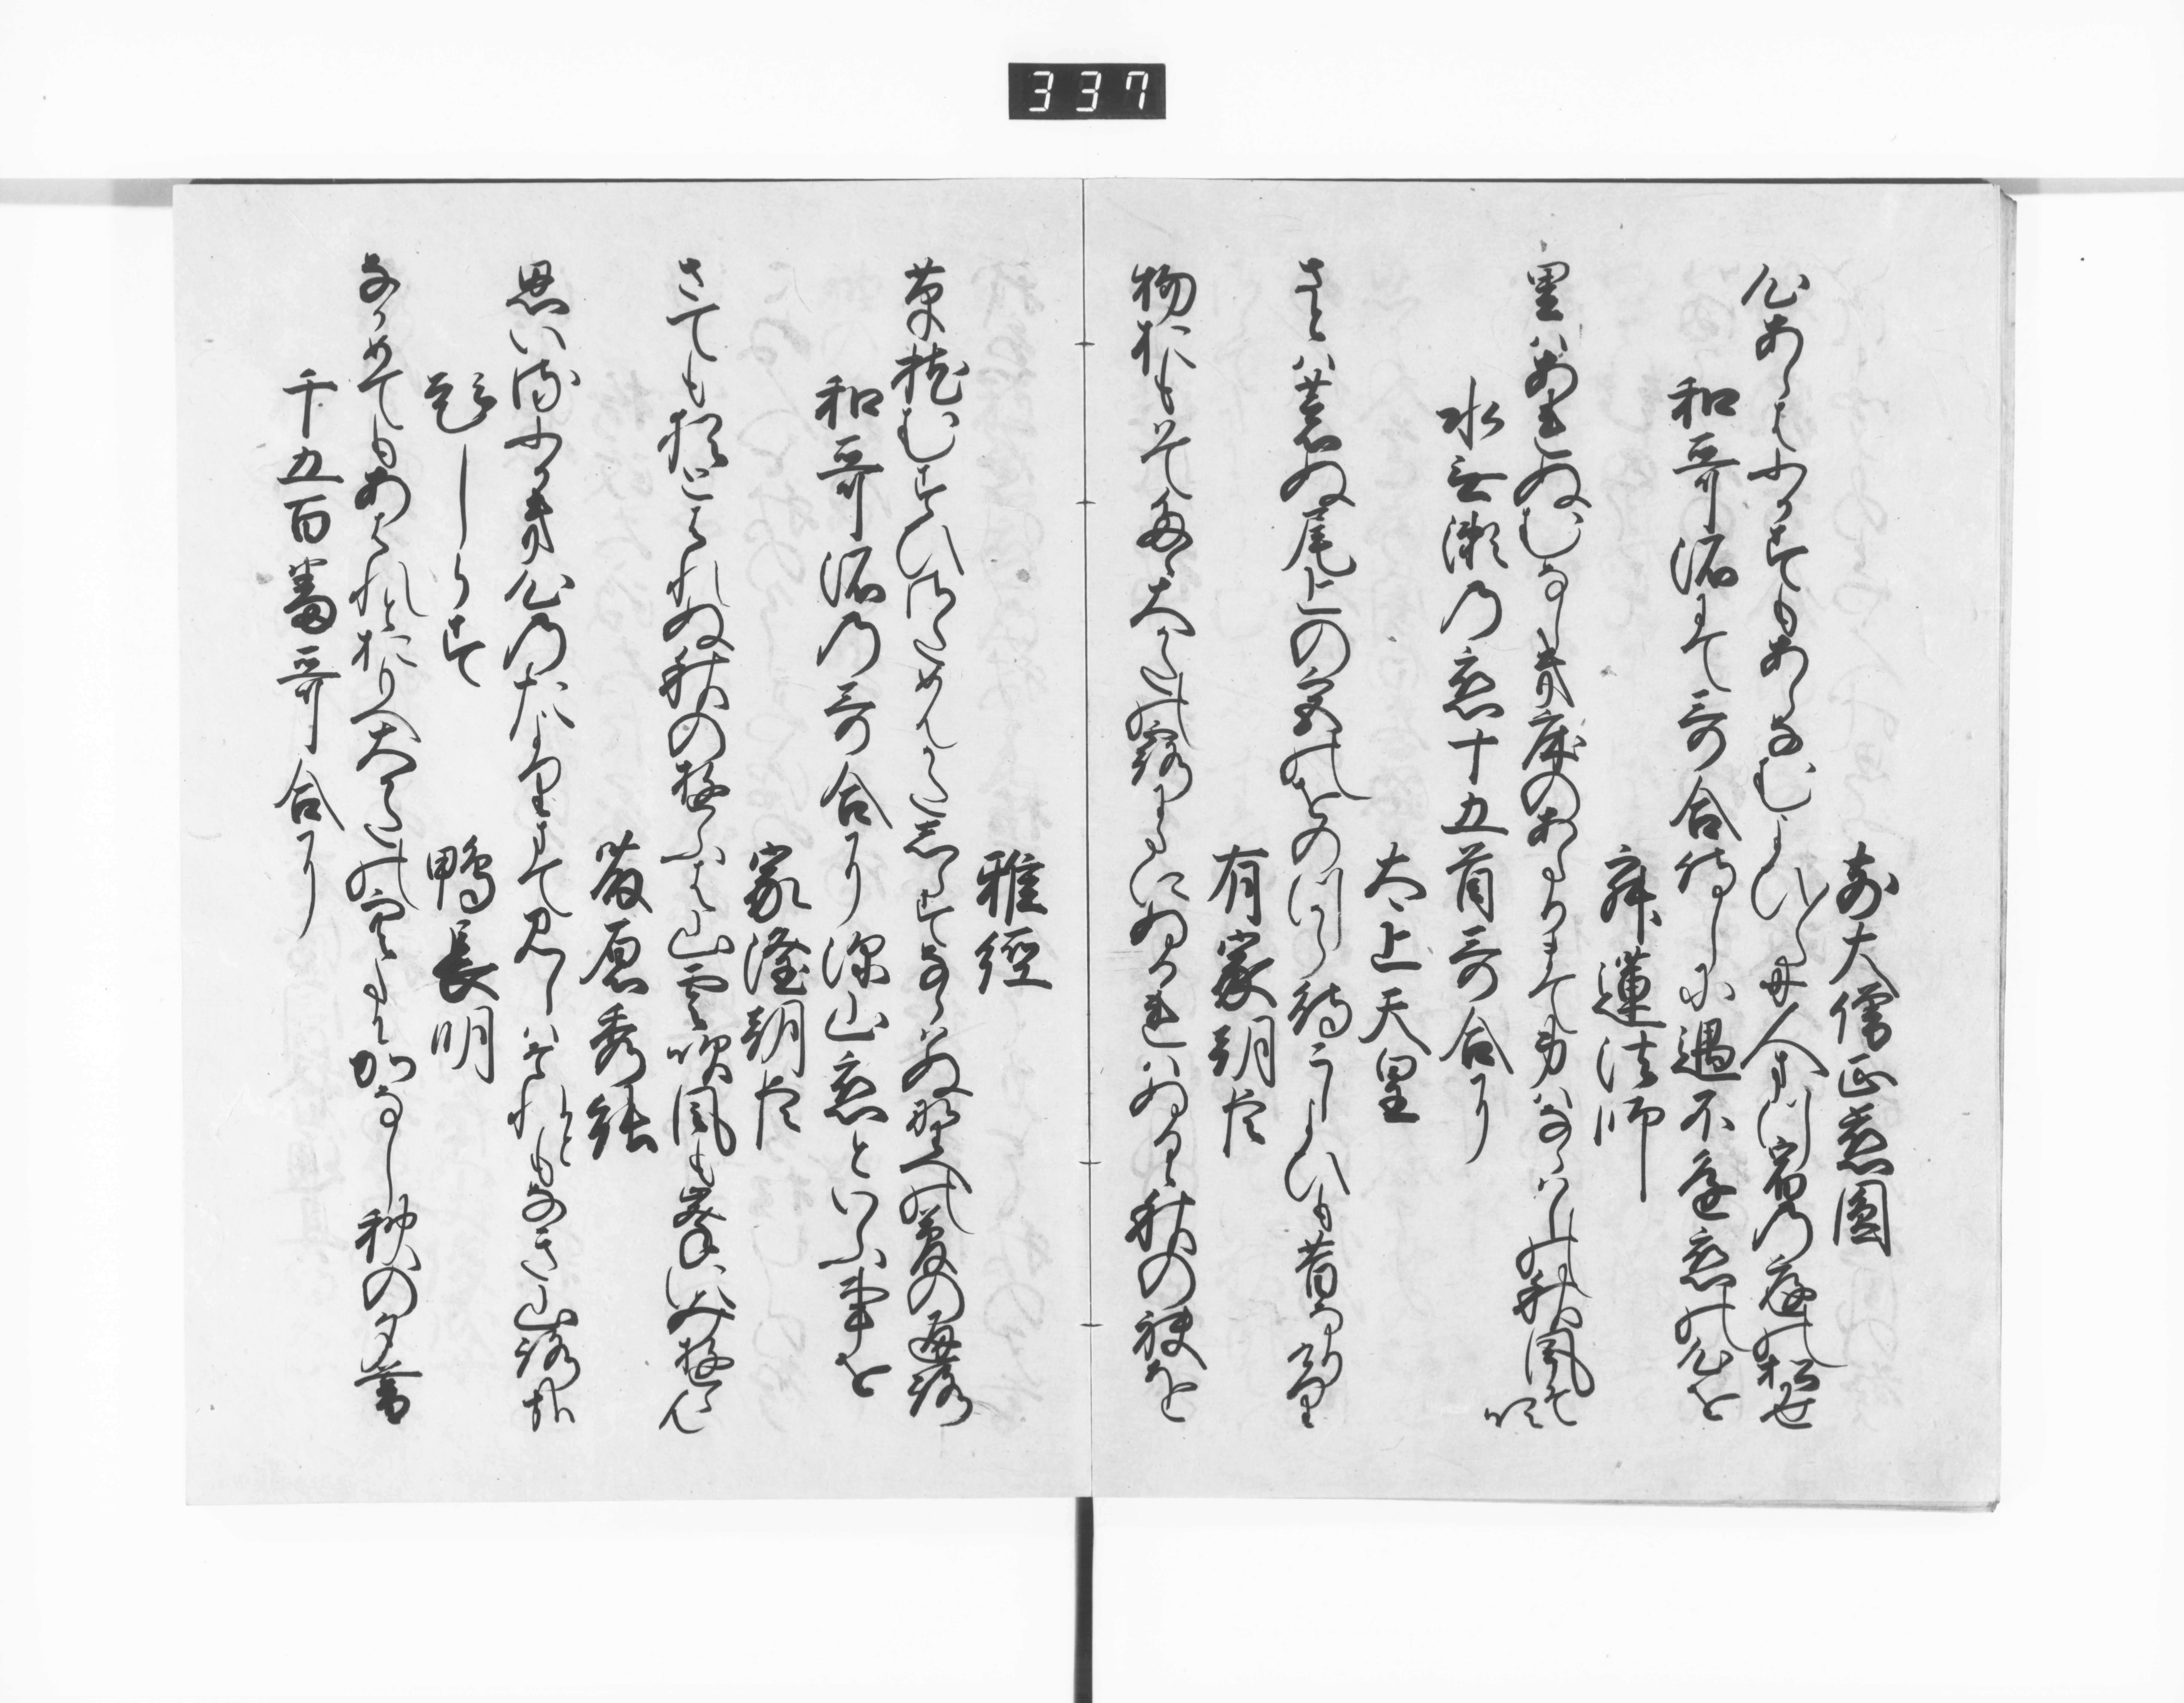 337
前大僧正慈圓
心あらはふかすもあらなむよひ〳〵に人まつ宿の庭の松かせ
和哥所にて哥合侍しに遇不逢恋の心を
寂蓮法師
里はあれぬむなしき床のあたりまて身はならはしの秋風そ吹
水無瀬の恋十五首哥合に
太上天皇
さとは荒ぬ尾上の宮のをのつから待こしよひも昔なりけり
有家朝臣
物おもはてたゝ大かたの露にたにぬるれはぬるゝ秋の袂を
雅經
草枕むすひさためんかたしらすならはぬ野への夢の通路
和哥所の哥合に深山恋といふ事を
家隆朝臣
さても猶とはれぬ秋のゆふは山雲吹風も峯にみゆらん
藤原秀能
思いるふかき心のたよりまて見しはそれともなき山路哉
題しらす
鴨長明
なかめてもあはれとおもへ大かたの空たにかなし秋の夕暮
千五百番哥合に